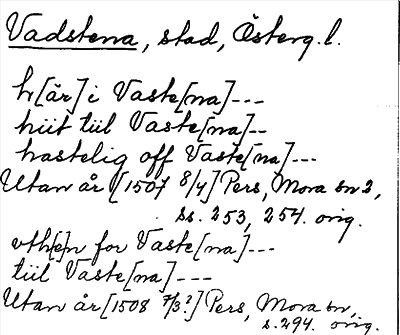 Vadstena, stad, Österg.l.
h[är] i Vaste[na]---
hiit tiil Vaste[na]--
hastelig off Vaste[na]---
Utan år [1507 8/4] Pers, Mora bn 2,
ss. 253, 254. orig.
vth[e]n for Vaste[na]---
tiil Vaste[na]---
Utan år [1508 7/3?] Pers, Mora bn,
s. 294. orig.